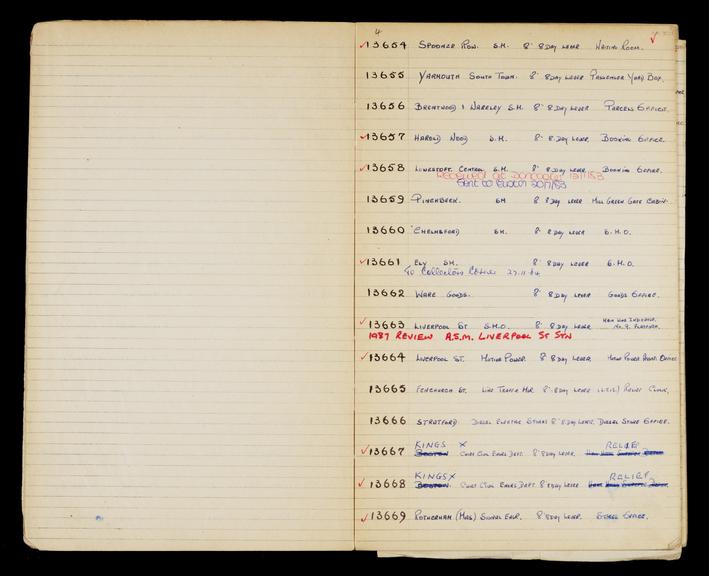 4
13654 SPOONER ROW. S.M. 8" 8 DAY LEVER WAITING ROOM.
13655 YARMOUTH SOUTH TOWN. 8" 8 DAY LEVER PASSENGER YARD BOX.
13656 BRENTWOOD & WARLEY S.M. 8" 8 DAY LEVER PARCELS OFFICE.
13657 HAROLD WOOD S.M. 8" 8 DAY LEVER. BOOKING OFFICE.
13658 LOWESTOFT. CENTRAL S.M. 8" 8 DAY LEVER BOOKING OFFICE.
Received at Doncaster 13/1/53
Sent to 20/1/53
13659 PINCHBECK. SM 8" 8 DAY LEVER MILL GREEN GATE CABIN.
13660 CHELMSFORD SM. 8" 8 DAY LEVER S.M.O.
13661 ELY SM. 8" 8 DAY LEVER S.M.O.
To Collectors Corner 27.11.84
13662 WARE GOODS. 8" 8 DAY LEVER GOODS OFFICE.
13663 LIVERPOOL ST S.M.O. 8" 8 DAY LEVER NEW INDICATOR. NO. 9. PLATFORM.
1987 REVIEW A.S.M. LIVERPOOL ST STN
13664 LIVERPOOL ST. MOTIVE POWER. 8" 8 DAY LEVER. MOTIVE POWER OFFICE
13665 FENCHURCH ST. LINE TRAFFIC MGR 8" 8 DAY LEVER RELIEF CLOCK.
13666 STRATFORD DIESEL ELECTRIC STORES 8" 8 DAY LEVER. DIESEL STORE OFFICE.
13667 KINGS X BOSTON. CHIEF CIVIL ENGRS DEPT. 8" 8 DAY LEVER RELIEF
13668 KINGS X BOSTON. CHIEF CIVIL ENGRS DEPT. 8" 8 DAY LEVER RELIEF
13669 ROTHERHAM (MAS) SIGNAL ENGR. 8" 8 DAY LEVER. STORES OFFICE.